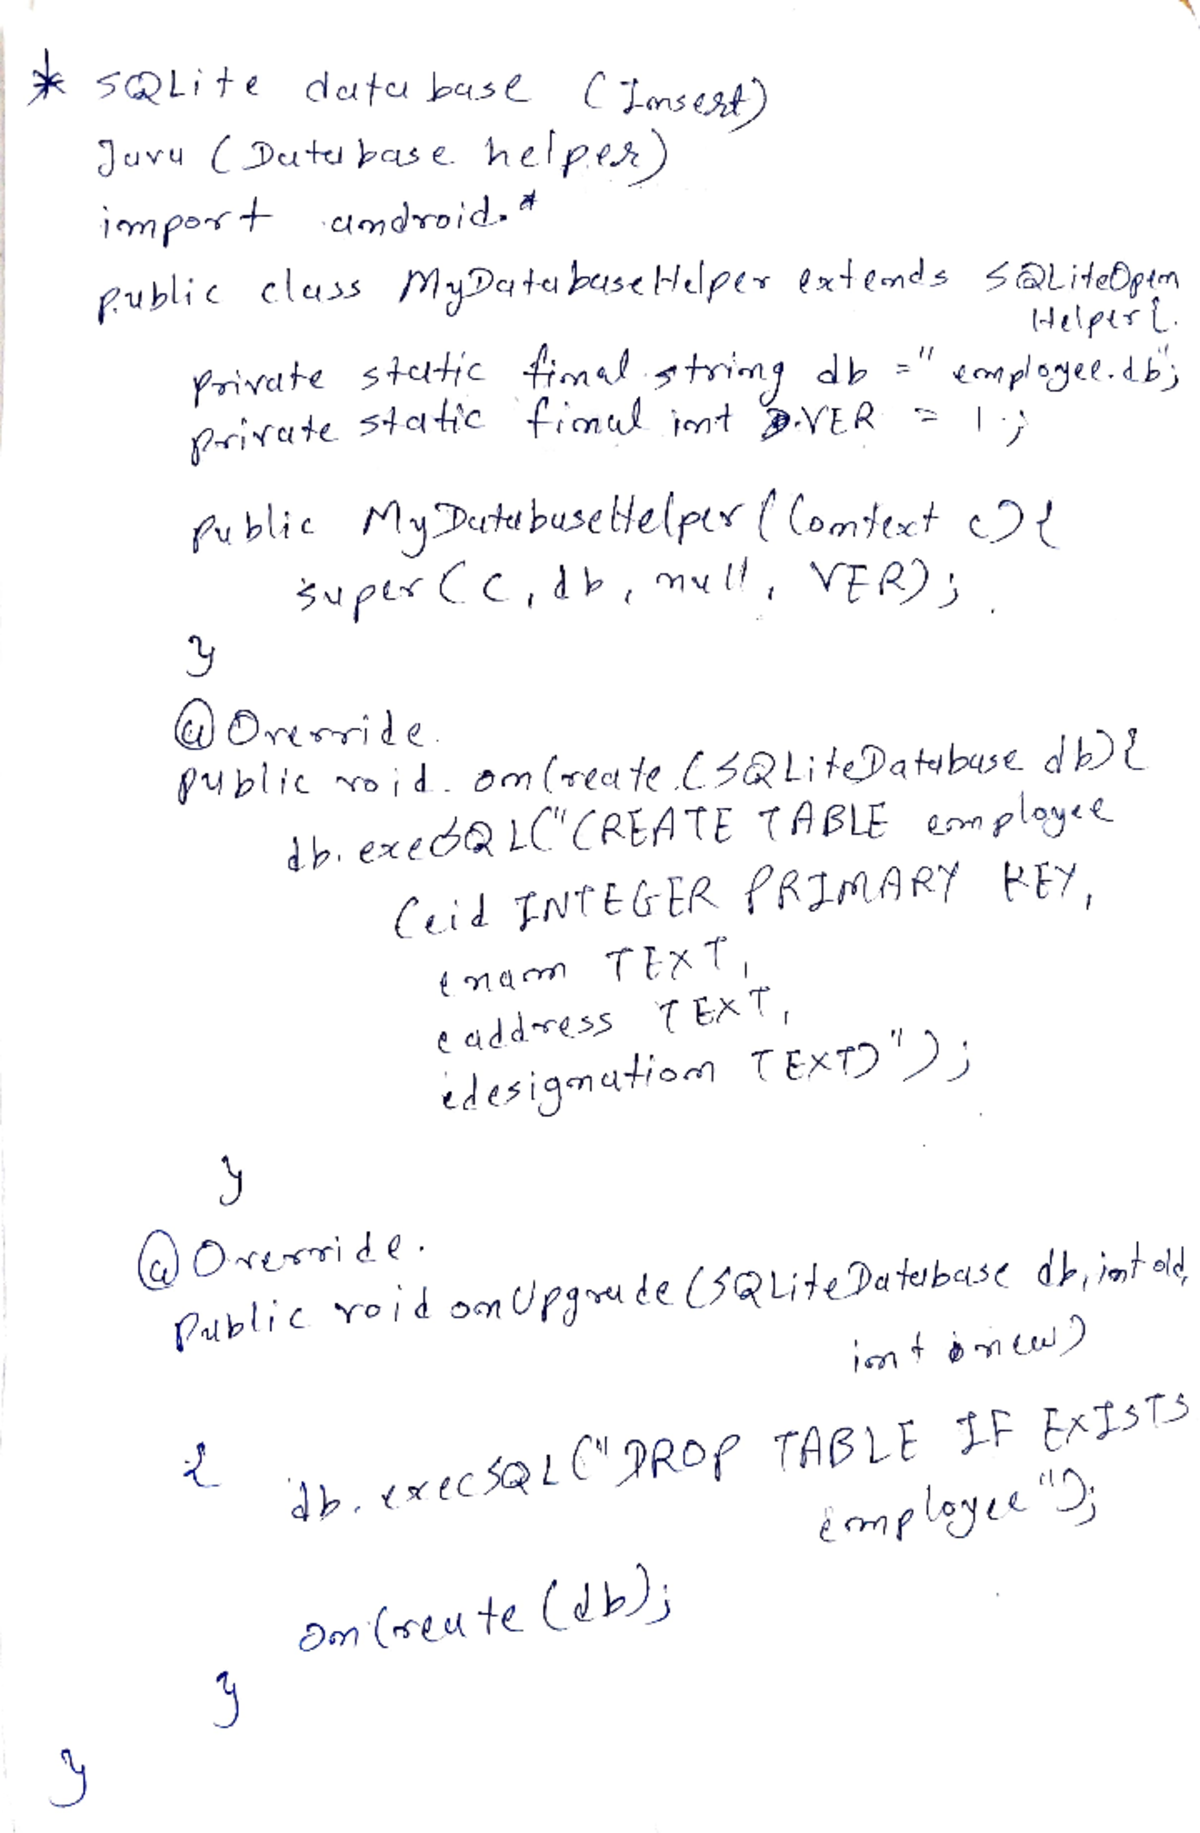 * SQLite database (Insert)
Java (Database helper)
import android.*
public class MyDatabaseHelper extends SQLiteOpen
Helper{
private static final string db = "employee.db";
private static final int VER = 1;
public MyDatabaseHelper(Context c){
super(c, db, null, VER);
}
@Override
public void onCreate(SQLiteDatabase db){
db.execSQL("CREATE TABLE employee
(eid INTEGER PRIMARY KEY,
enam TEXT,
eaddress TEXT,
edesignation TEXT)");
}
@Override.
Public void onUpgrade(SQLiteDatabase db, int old,
int new)
{ db.execSQL("DROP TABLE IF EXISTS
employee");
onCreate(db);
}
}